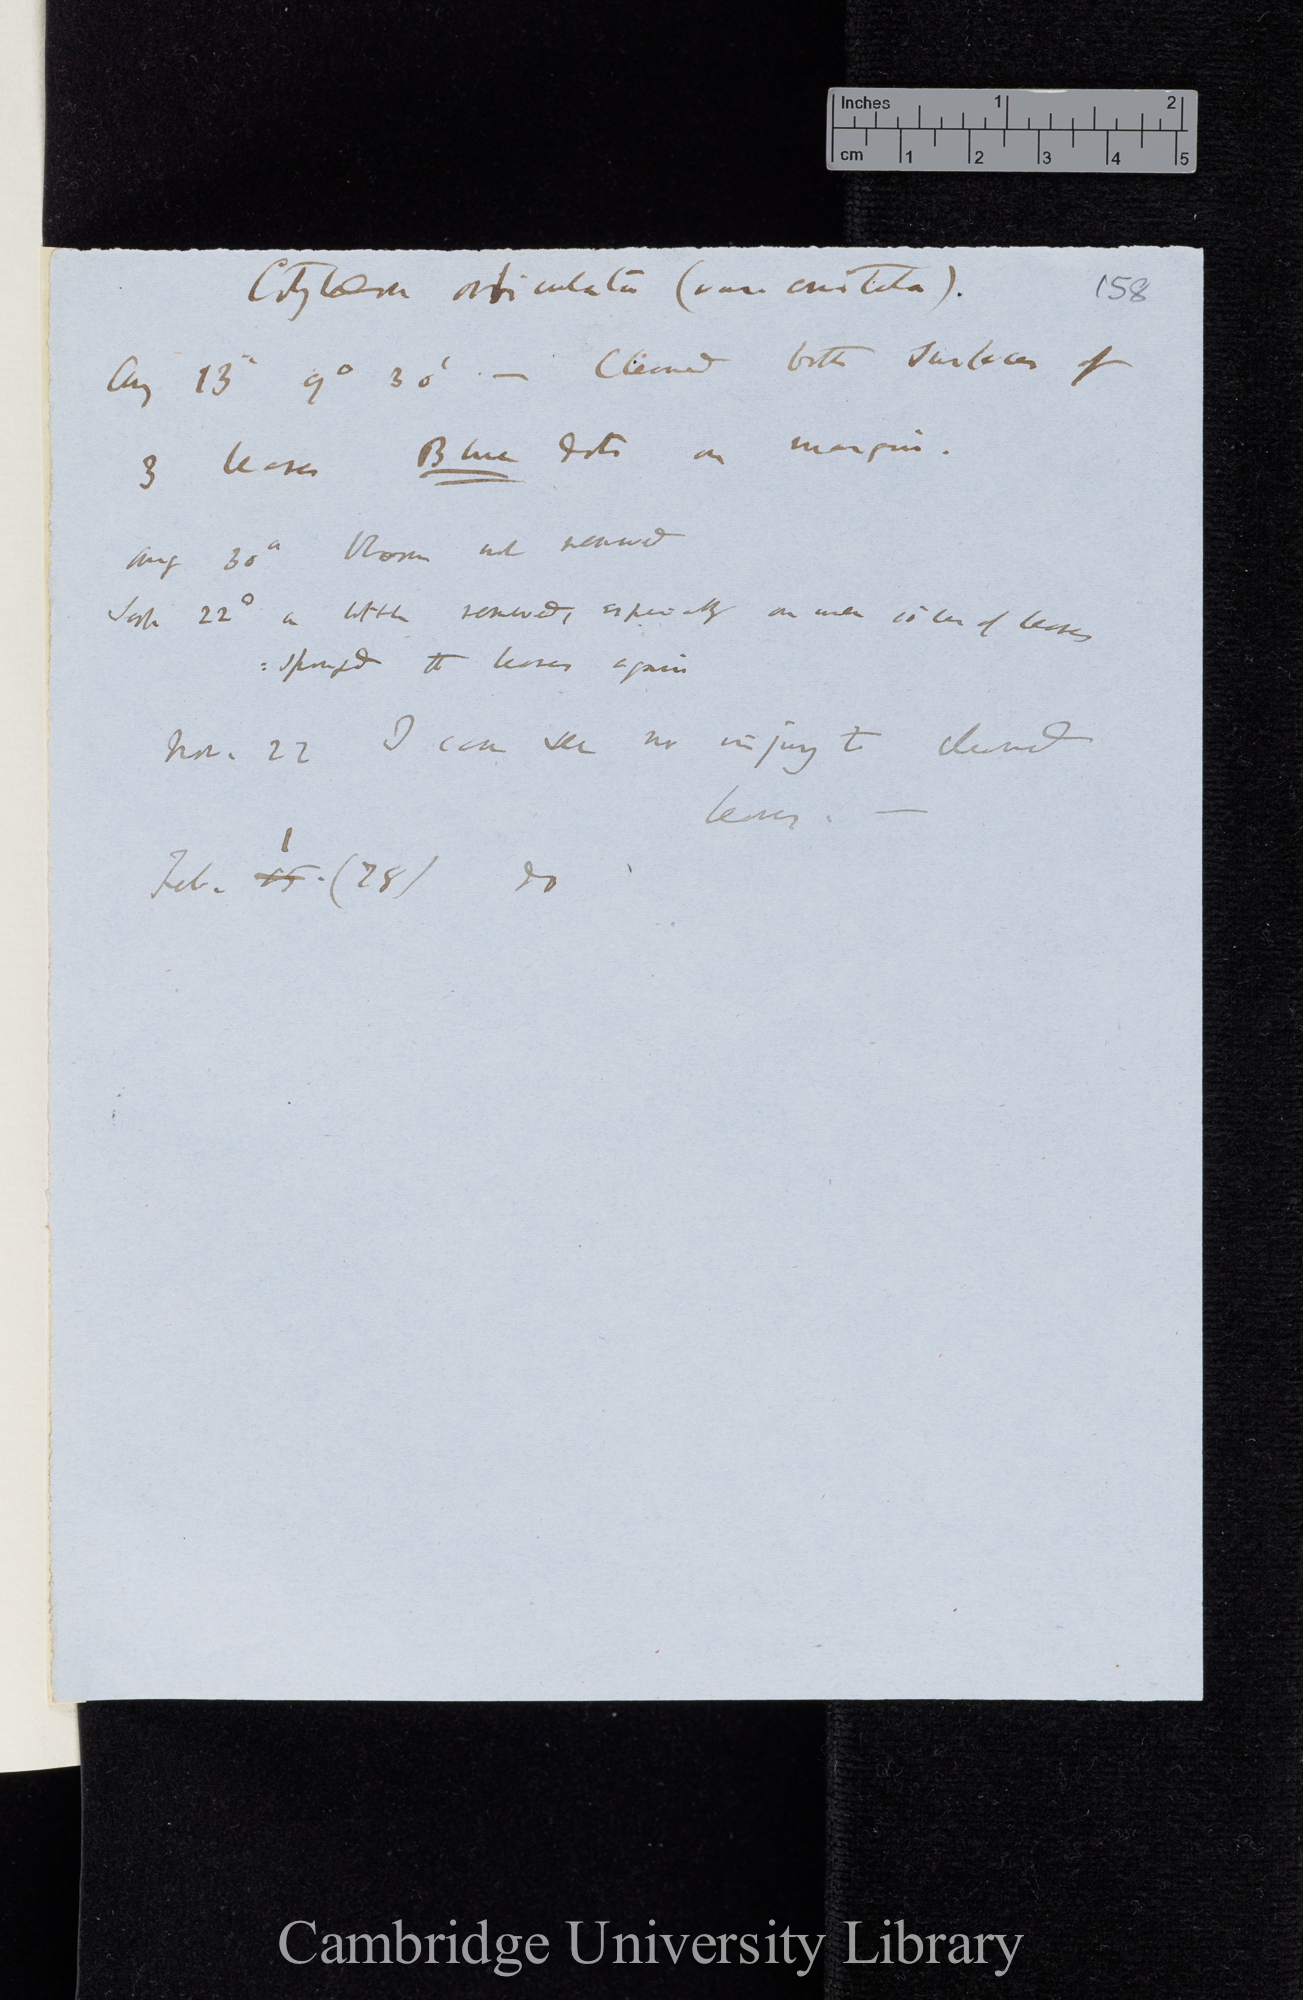 Inches 1 2
cm 1 2 3 4 5
158
Cotyledon orbiculata (var. cristata).
Aug 13th 9° 30' — Cleaned both surfaces of
3 leaves Blue dots on margin.
Aug 30th Bloom not renewed
Sept 22° a little renewed, especially on under of leaves
: sponged the leaves again
Nov. 22 I can see no injury to cleaned
leaves. —
1
Feb. 15. (78) do
Cambridge University Library